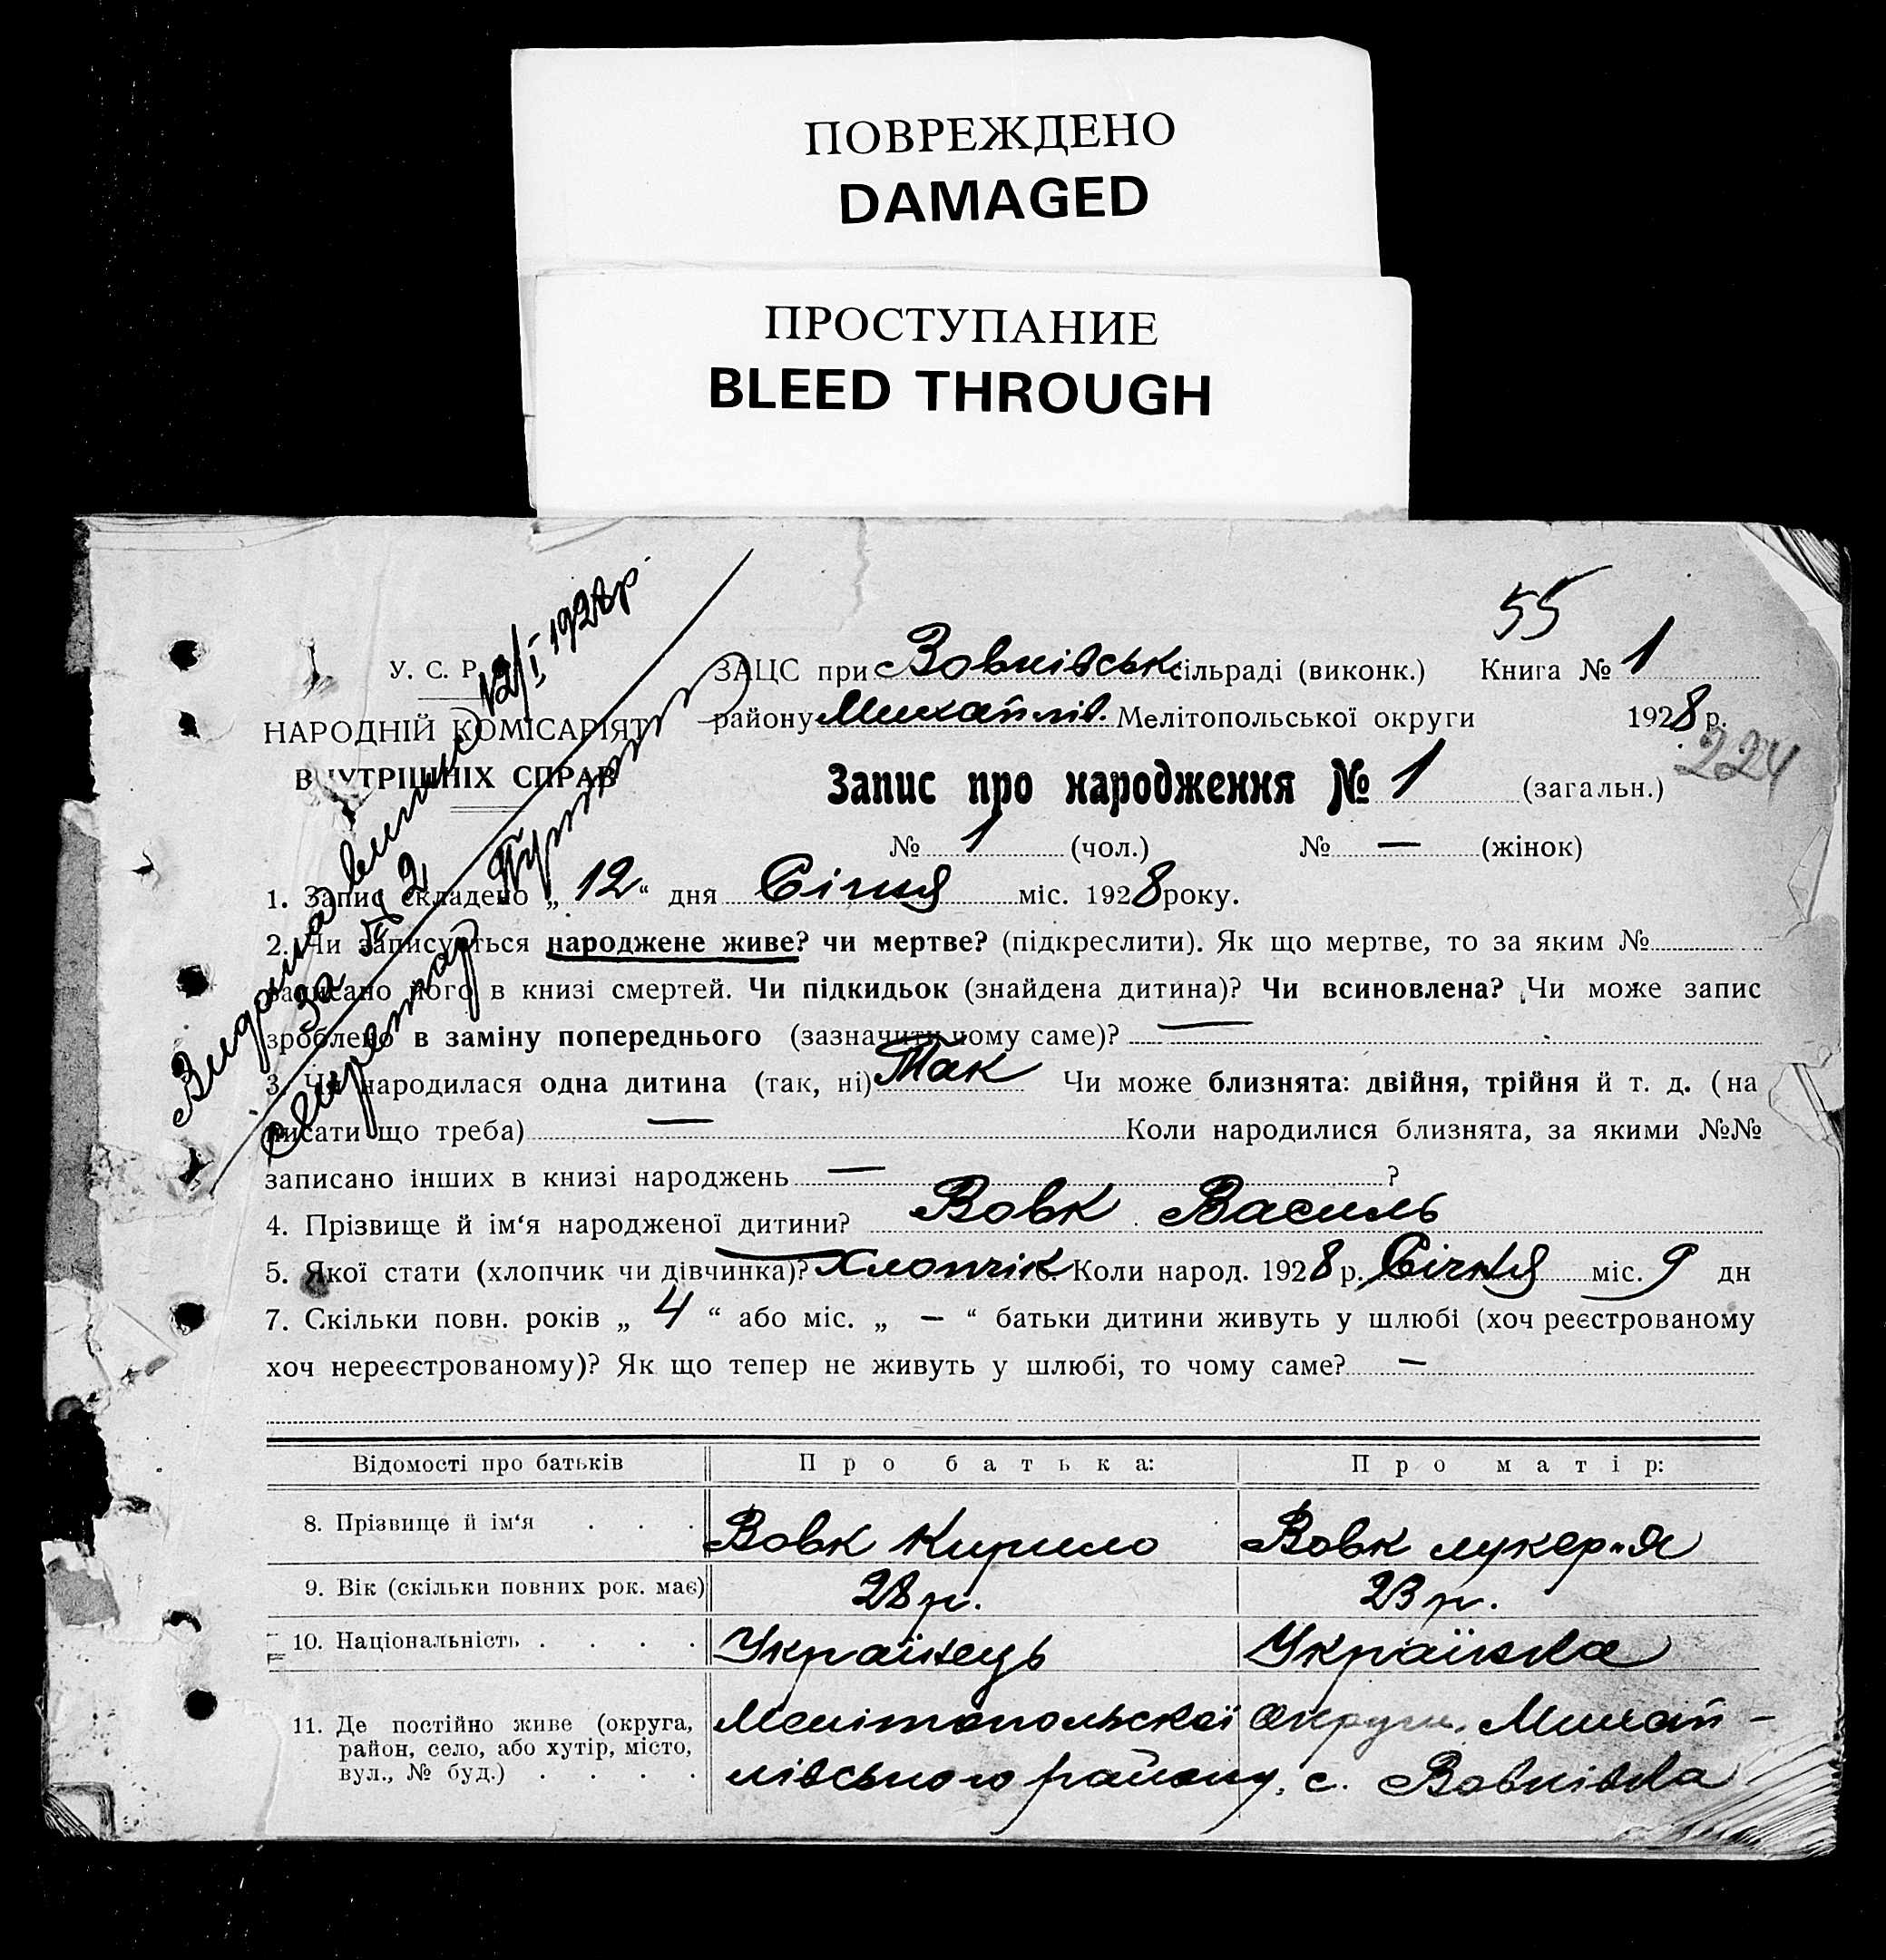 ПОВРЕЖДЕНО
DAMAGED
ПРОСТУПАНИЕ
BLEED THROUGH
55
У. С. Р.
ЗАЦС при Вовківськ сільраді (виконк.) Книга № 1
НАРОДНІЙ КОМІСАРІЯТ
району Михайлів. Мелітопольської округи 1928 р.
224
ВНУТРІШНІХ СПРАВ
Запис про народження № 1 (загальн.)
№ 1 (чол.) № — (жінок)
Видана виписка 12/I 1928р.
за № 2
Секретар
1. Запис складено „ 12 “ дня Січня міс. 1928 року.
2. Чи записується народжене живе? чи мертве? (підкреслити). Як що мертве, то за яким №
записано його в книзі смертей. Чи підкидьок (знайдена дитина)? Чи всиновлена? Чи може запис
зроблено в заміну попереднього (зазначити чому саме)? —
3. Чи народилася одна дитина (так, ні) Так Чи може близнята: двійня, трійня й т. д. (на
писати що треба) — Коли народилися близнята, за якими №№
записано інших в книзі народжень — ?
4. Прізвище й ім‘я народженої дитини? Вовк Василь
5. Якої стати (хлопчик чи дівчинка)? Хлопчік 6. Коли народ. 1928 р. Січня міс. 9 дн
7. Скільки повн. років „ 4 “ або міс. „ — “ батьки дитини живуть у шлюбі (хоч реєстрованому
хоч нереєстрованому)? Як що тепер не живуть у шлюбі, то чому саме? —
Відомості про батьків Про батька: Про матір:
8. Прізвище й ім‘я . . . Вовк Кирило Вовк Лукер'я
9. Вік (скільки повних рок. має) 28 р. 23 р.
10. Національність . . . . Українець Українка
11. Де постійно живе (округа, район, село, або хутір, місто, вул., № буд.) . . . . Мелітопольскої округи, Михай-
лівського району, с. Вовківка